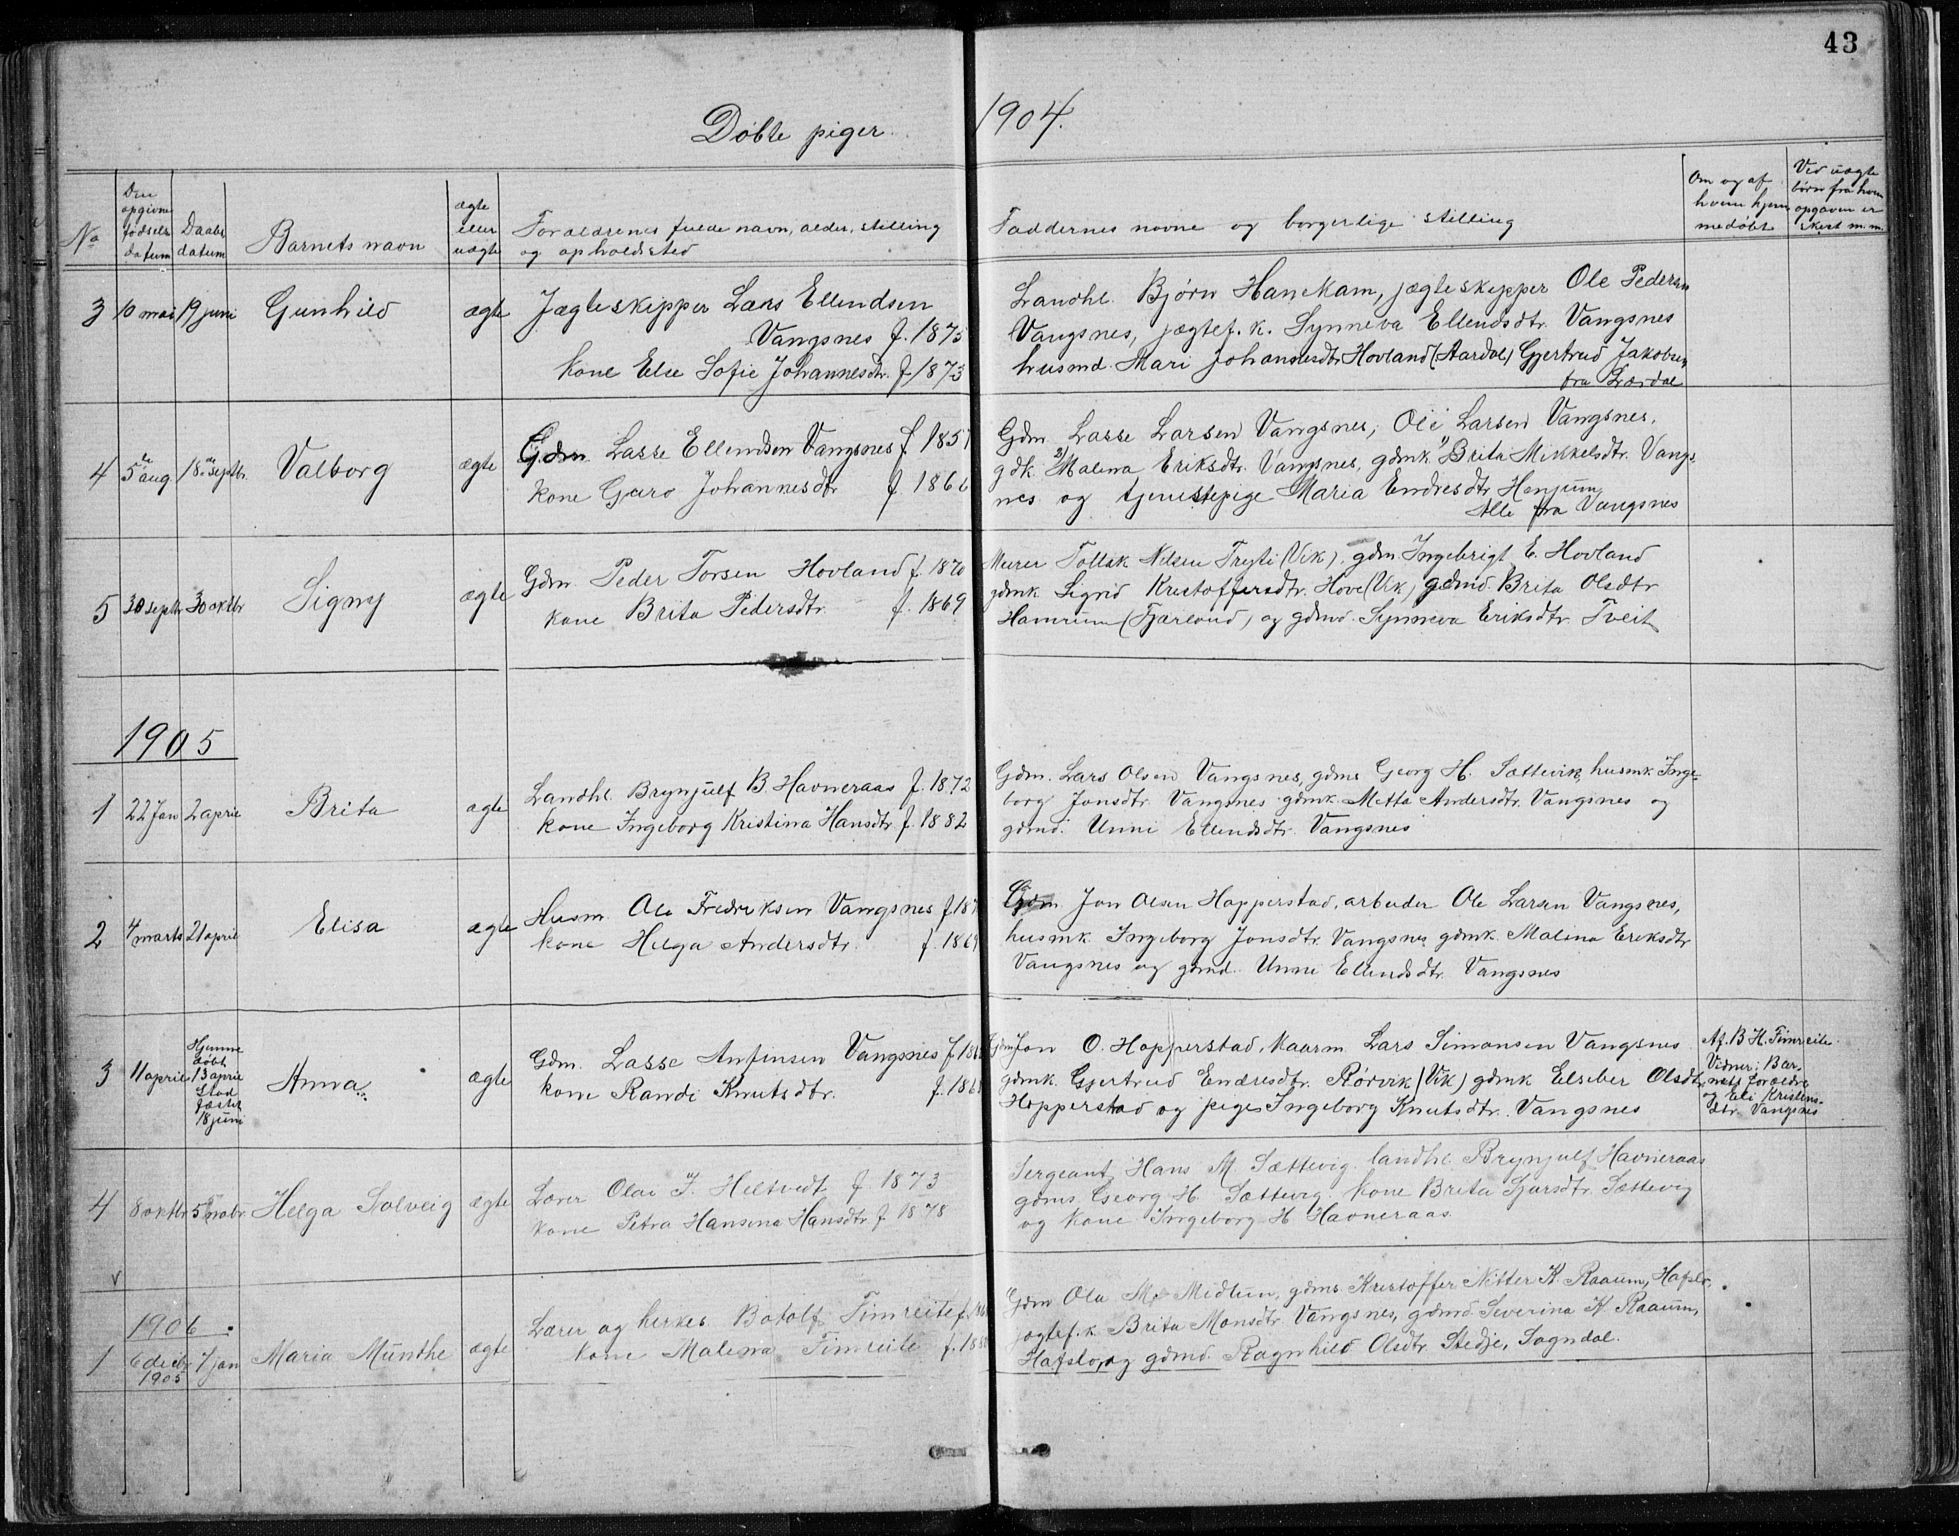 43
Døbte piger 1904.
No
Den opgivne fødsels datum
Daabs datum
Barnets navn
ægte eller uægte
Forældrenes fulde navn, alder, stilling
og opholdssted
Faddernes navne og borgerlige stilling
Om og af hvem hjemmedøbt
Ved uægte børn fra hvem opgaven er skeet m.m.
3 10 mai 19 juni Gunhild ægte
Jægteskipper Lars Ellendsen
Vangsnes f. 1875
kone Else Sofie Johannesdtr. f. 1873
Landhl. Bjørn Hanekam, jægteskipper Ole Pedersen
Vangsnes, jægtef. k. Synneva Ellendsdtr. Vangsnes
husmd. Mari Johannesdtr Hovland (Aardal) Gjertrud Jakobsen
fra Lærdal
4 5te aug 18de septbr. Valborg ægte
Gdm. Lasse Ellendsen Vangsnes f 1857
kone Gjaro Johannesdtr f. 1866
Gdm. Lasse Larsen Vangsnes, Ole Larsen Vangsnes,
gdk. Malena Eriksdtr. Vangsnes, gdmk. Brita Mikkelsdtr. Vangs
nes og tjenestepige Maria Endresdtr. Henjum
Alle fra Vangsnes
5 30 septbr 30 oktbr Signy ægte
Gdm. Peder Torsen Hovland f. 1870
kone Brita Pedersdtr. f. 1869
Murer Tollak Nilsen Tryti (Vik), gdm Ingebrigt E. Hovland
gdmk. Sigrid Kristoffersdtr. Hove (Vik) gdmd. Brita Olsdtr
Hamrum (Fjærland) og gdmd. Synneva Eriksdtr. Tveit
1905
1 22 Jan 2 april Brita ægte
Landhl. Brynjulf B. Havneraas f. 1872
kone Ingeborg Kristina Hansdtr. f. 1882
Gdm. Lars Olsen Vangsnes, gdms Georg H. Sættevik, husmk. Inge-
borg Jonsdtr. Vangsnes gdmk. Metta Andersdtr. Vangsnes og
gdmd. Unni Ellendsdtr. Vangsnes
2 4 marts 21 april Elisa ægte
Husm Ole Fredriksen Vangsnes f. 187
kone Helga Andersdtr. f. 1869
Gdm Jon Olsen Hopperstad, arbeider Ole Larsen Vangsnes,
husmk. Ingeborg Jonsdtr. Vangsnes gdmk. Malena Eriksdtr
Vangsnes og gdmd. Unni Ellendsdtr. Vangsnes
3 11 april Hjemme døbt 13 april Stadfæstet 18 juni Anna ægte
Gdm. Lasse Anfinsen Vangsnes f. 186
kone Randi Knutsdtr. f. 186
Gdm Jon O. Hopperstad, kaarm. Lars Simonsen Vangsnes
gdmk. Gjertrud Endresdtr. Rørvik (Vik) gdmk Elseber Olsdtr
Hopperstad og pige Ingeborg Knutsdtr. Vangsnes
Af B. H. Timreite.
Vidner: Bar-
nets forældre
og Eli Kristens-
dtr. Vangsnes
4 8 oktbr 5te novbr. Helga Solveig ægte
Lærer Olai J. Heltvedt f. 1873
kone Petra Hansina Hansdtr f. 1878
Sergeant Hans M. Sættevig. landhl. Brynjulf Havneraas
gdms. Georg H. Sættevig. kone Brita Sjursdtr. Sættevig
og kone Ingeborg H Havneraas.
1906
1 6 decbr 1905 7 jan Maria Munthe ægte
Lærer og kirkes. Botolf Timreite f. 186
kone Malena Timreite f. 18
Gdm Ola M. Midlun, gdms. Kristoffer Nitter K. Raaum, Hafslo,
jægtef. k. Brita Monsdtr. Vangsnes, gdmd. Severina K Raaum,
Hafslo, og gdmd. Ragnhild Olsdtr. Stedje, Sogndal.